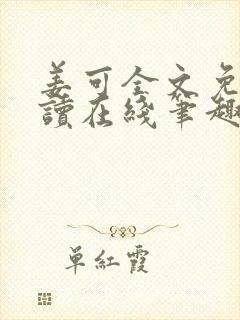 姜可全文免
讀在綫筆趣
単紅霞